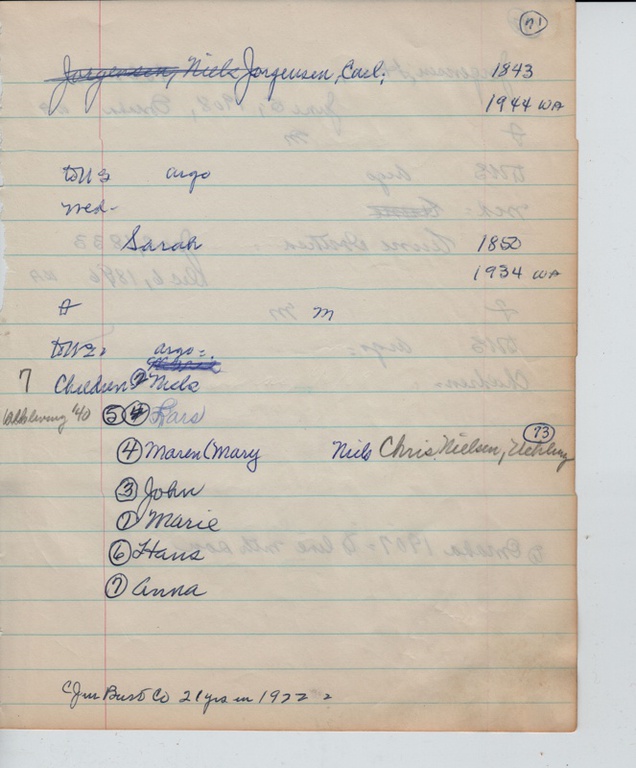 71
Jorgensen, Niels Jorgensen, Carl; 1843
1944 WA
to U.S argo
med-
Sarah 1850
1934 WA
F M
to U.S. argo-
7 Children ② Nick
All living '40 ⑤ ④ Lars
④ Maren (Mary Niels Chris Nielsen, Uehling 73
③ John
① Marie
⑥ Hans
⑦ Anna
Burt Co 21 yrs in 1922